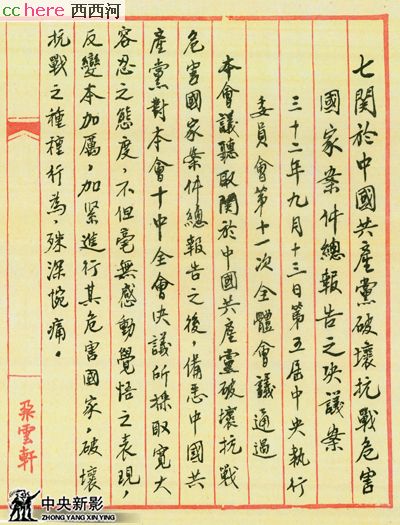 cchere 西西河
七關於中國共產黨破壞抗戰危害
國家案件總報告之決議案
三十二年九月十三日第五屆中央執行
委員會第十一次全體會議通過
本會議聽取關於中國共產黨破壞抗戰
危害國家案件總報告之後，備悉中國共
產黨對本會十中全會決議所採取寬大
容忍之態度，不但毫無感動覺悟之表現，
反變本加厲，加緊進行其危害國家，破壞
抗戰之種種行為，殊深惋痛。
飛雲軒
中央新影
ZHONG YANG XIN YING